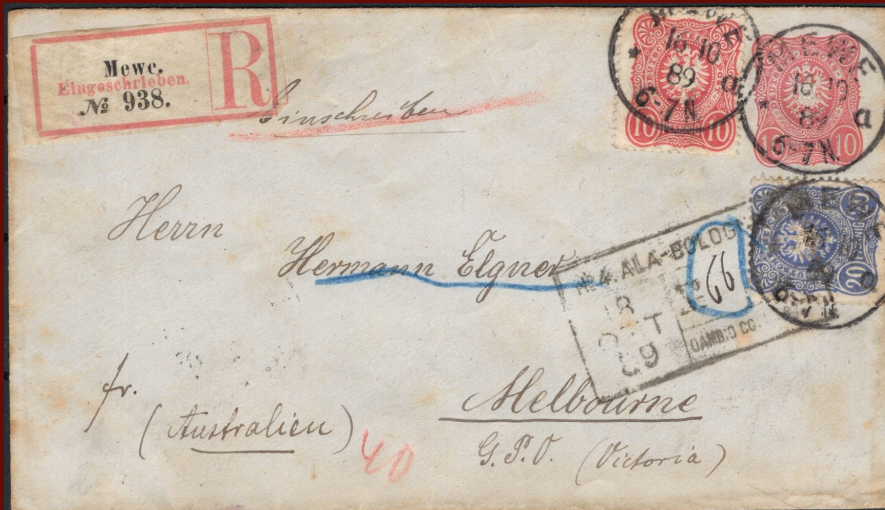 Mewe.
Eingeschrieben.
№ 938.
R
Einschreiben
MEWE
16 10
89
6-7N
a
10 10
MEWE
16 10
89
6-7N.
a
10
20
Herrn
Hermann Elgner
№ 4 ALA-BOLOGN
18
OCT
89
CAMBIO CO
fr.
(Australien)
40
Melbourne
G.P.O. (Victoria)